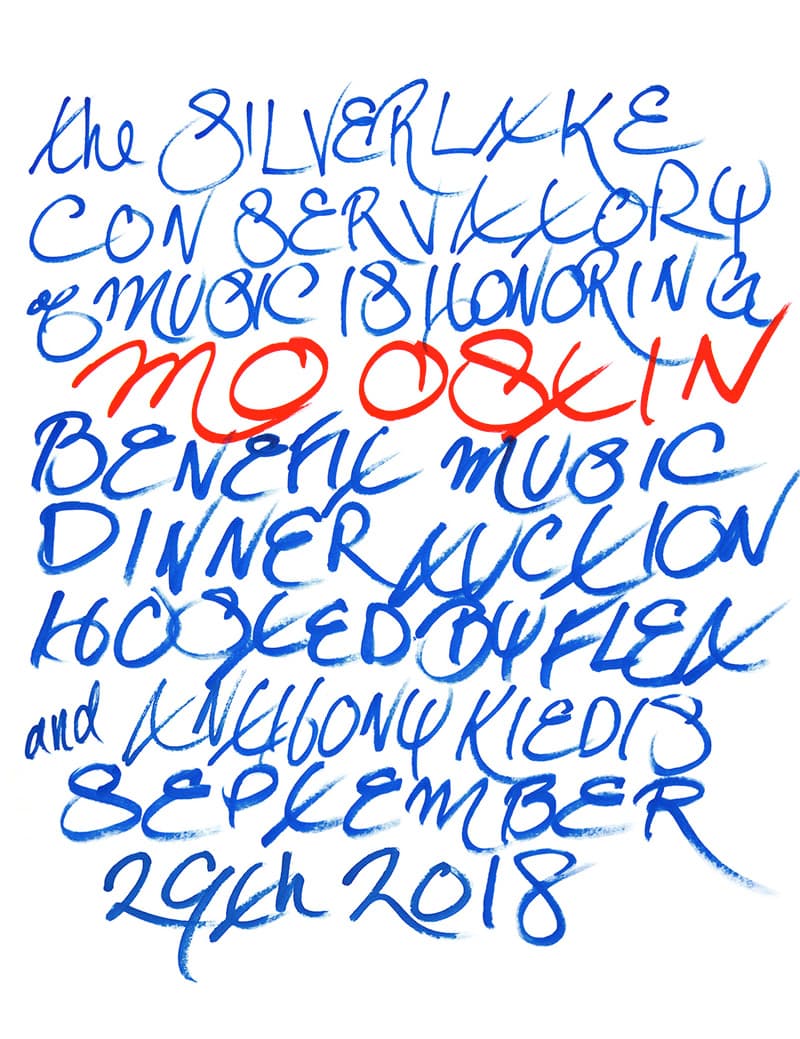 the SILVERLAKE
CONSERVATORY
of MUSIC IS HONORING
MO OSTIN
BENEFIT MUSIC
DINNER AUCTION
HOSTED BY FLEA
and ANTHONY KIEDIS
SEPTEMBER
29th 2018